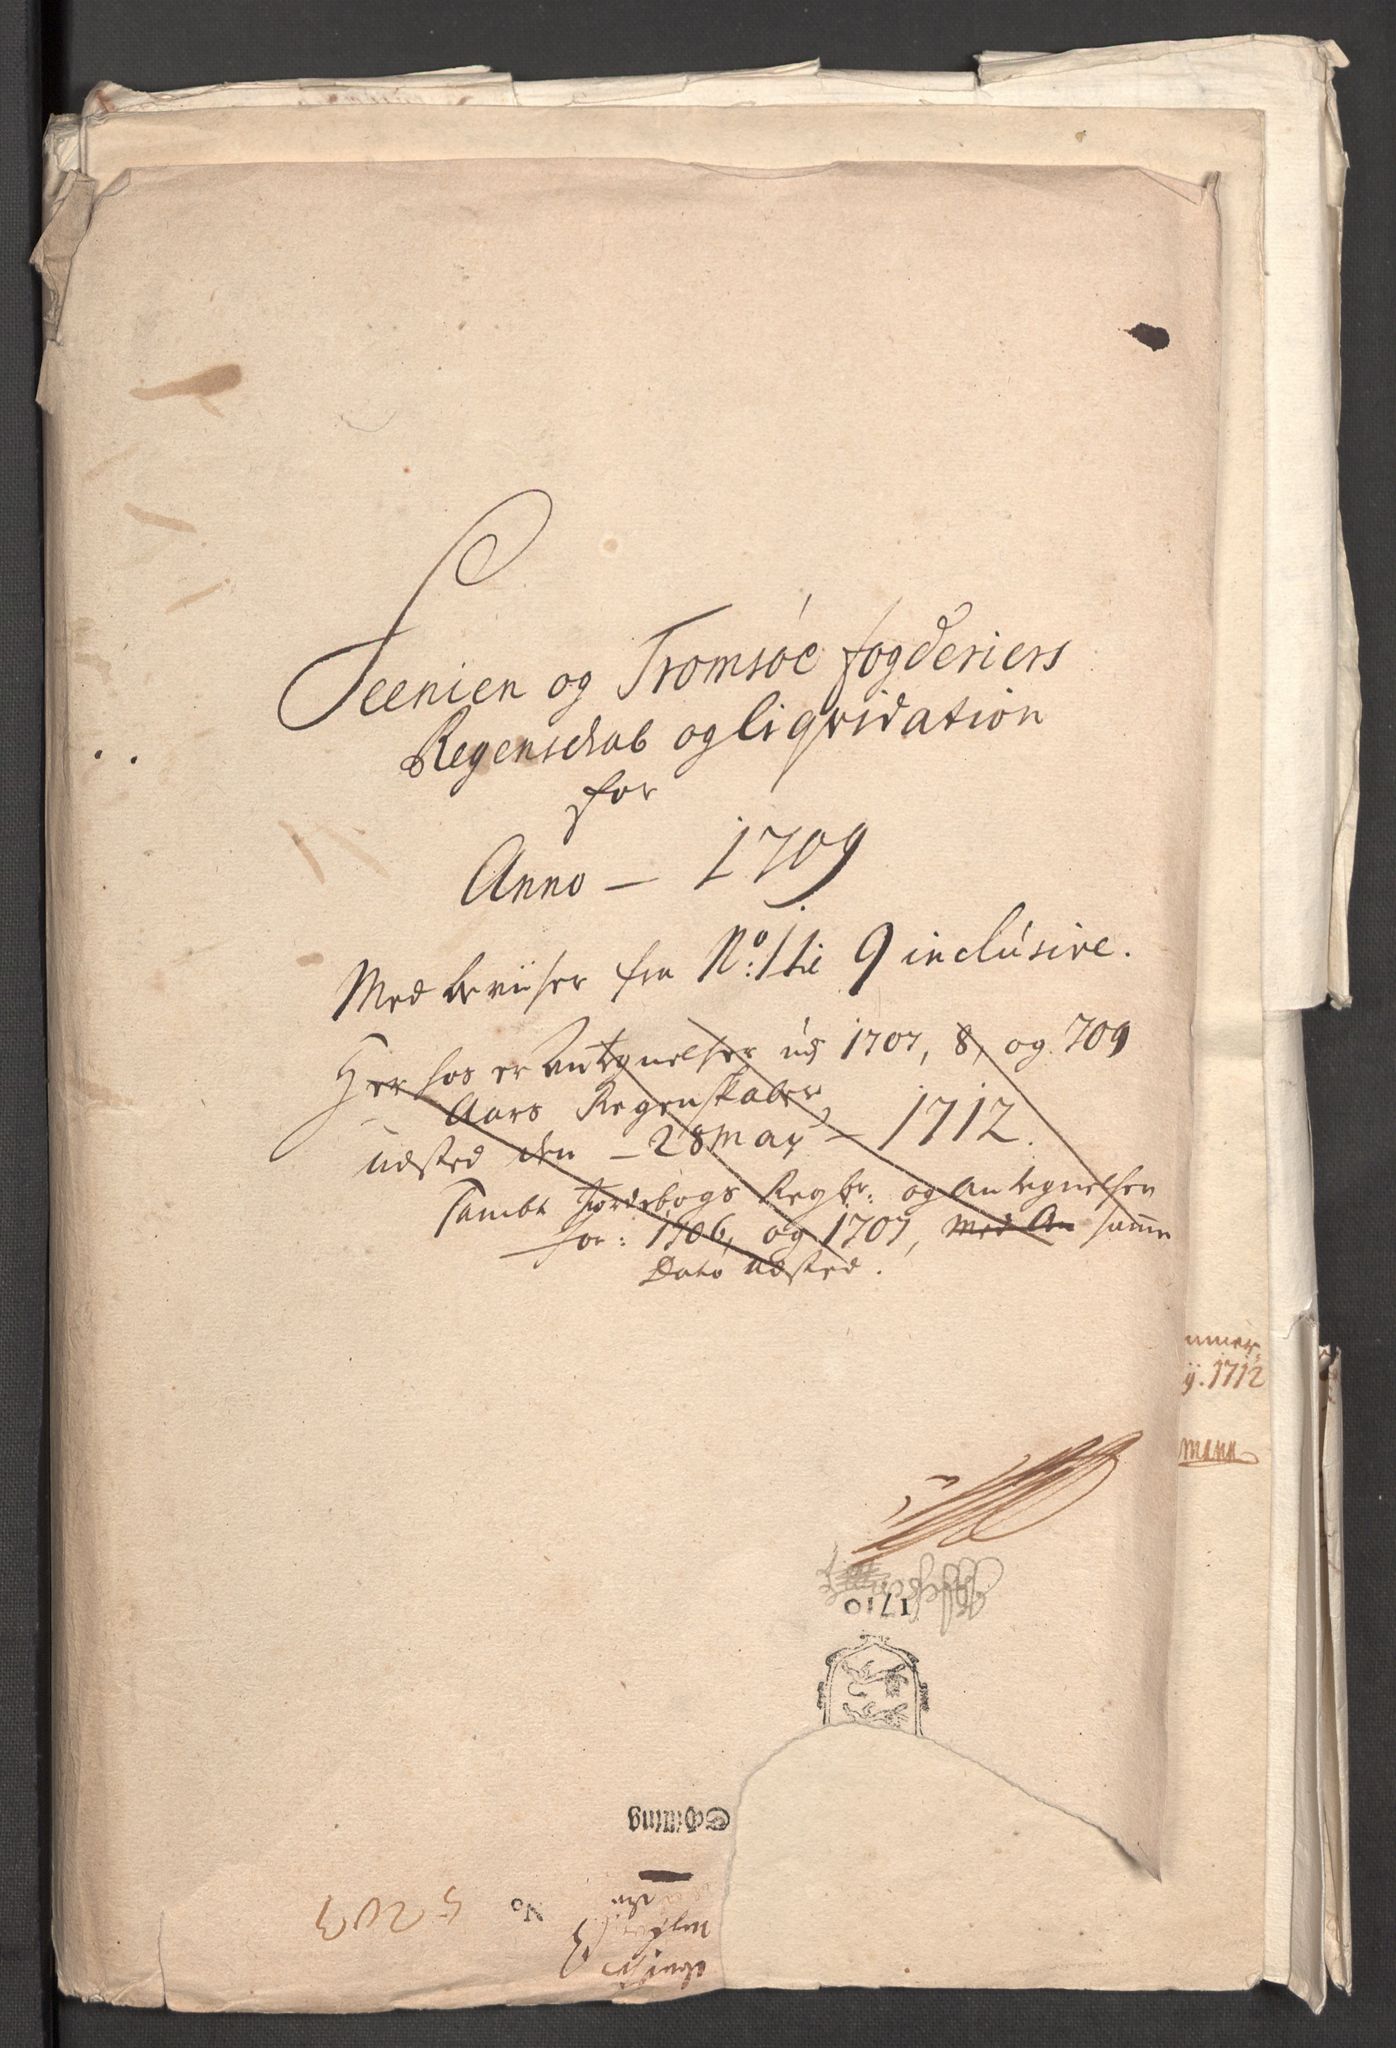 Seenien og Tromsöe fogderiers
Regenschab og liqvidation
for
Anno – 1709
Med beviiser fra No: 1 til 9 inclúsive.
Her hos er Antegnelser ud 1707, 8, og 709
Aars Regenskaber
udsted den – 28 May – 1712.
Sambt Jordebogs Regbr: og Antegnelsen
for: 1706, og 1707, med An samme
Dato udsted.
ummer
ij. 1712
mann
1710
Schilling
No
5203